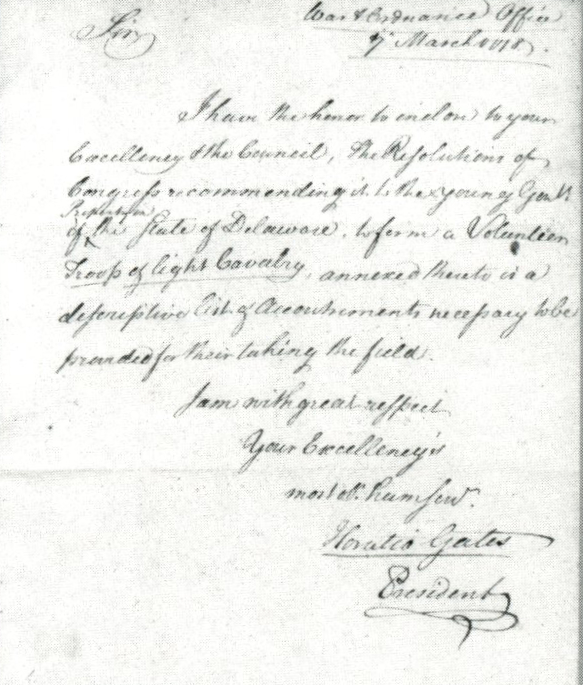 War & Ordnance Office
Sir
7 March 1778.
I have the honor to enclose to your
Excellency & the Council, the Resolutions of
Congress recommending it to the young Gent
Propertys
of the State of Delaware, to form a Volunteer
Troop of light Cavalry, annexed thereto is a
descriptive list of Accoutrements necessary to be
provided for their taking the field.
I am with great respect
Your Excellency's
most ob. hum Serv.
Horatio Gates
President